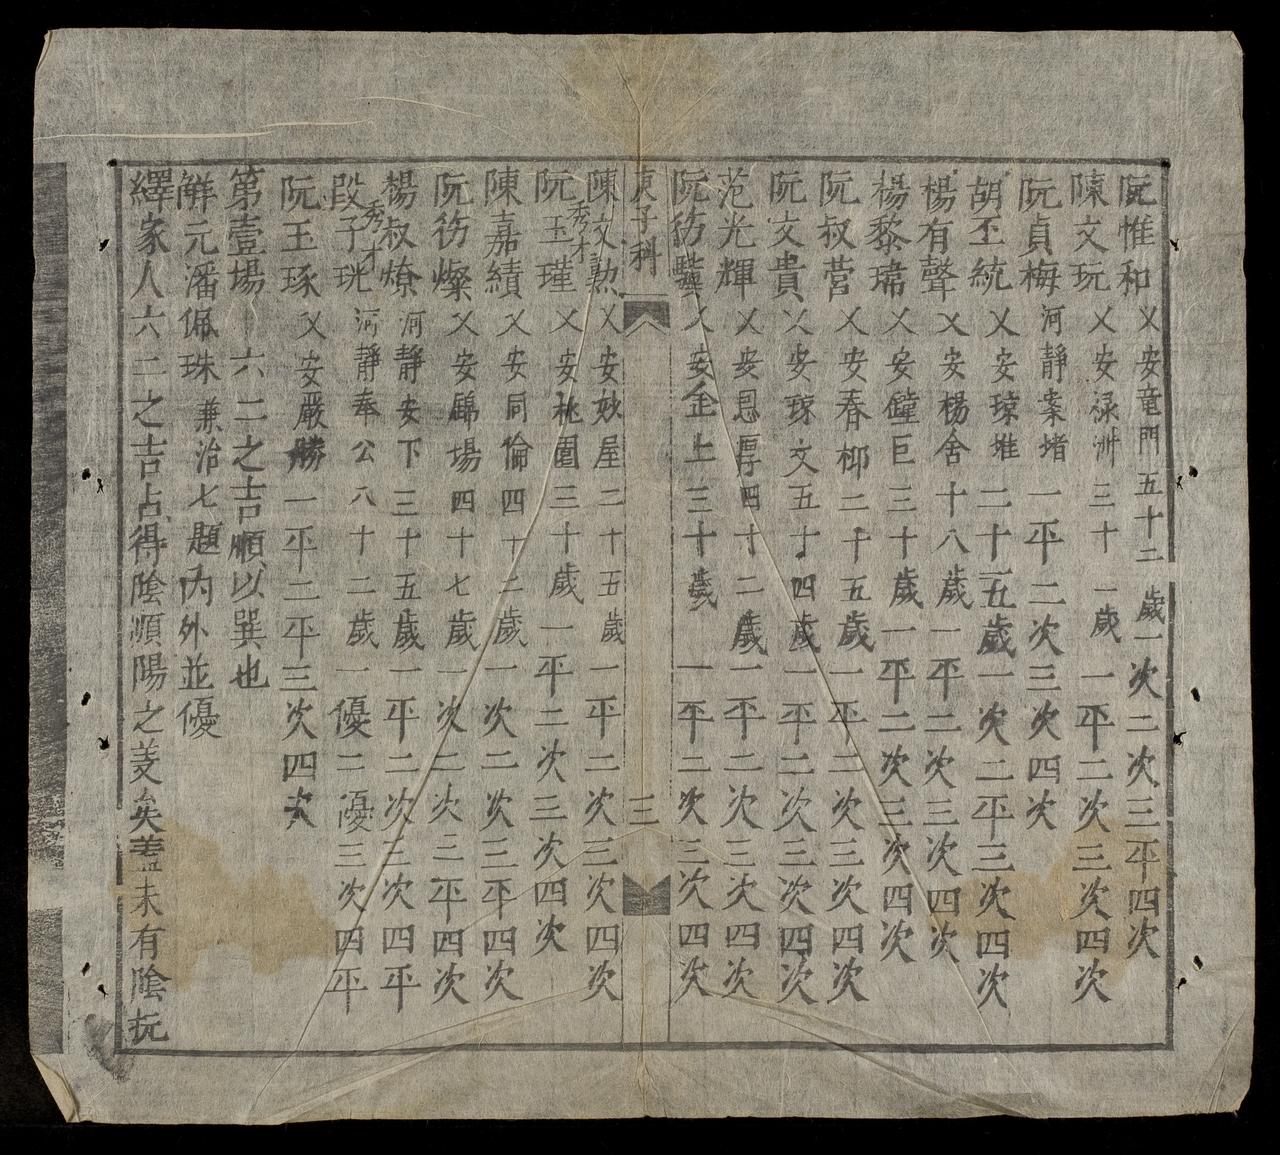 阮惟和乂安竜門五十二歲一次二次三平四次
陳文玩乂安禄洲三十一歲一平二次三次四次
阮貞梅河靜案堵一平二次三次四次
胡丕統乂安瓊堆二十五歲一次二平三次四次
楊有聲乂安楊舍十八歲一平二次三次四次
楊黎瑋乂安鐘巨三十歲一平二次三次四次
阮叔营乂安春柳二十五歲一平二次三次四次
阮文貴乂安瓊文五十四歲一平二次三次四次
范光輝乂安恩厚四十二歲一平二次三次四次
阮乂安企上三十歲一平二次三次四次
庚子科 三
陳文勲乂安妙屋二十五歲一平二次三次四次
秀才
阮玉瑾乂安桃園三十歲一平二次三次四次
陳嘉績乂安同倫四十二歲一次二次三平四次
阮燦乂安場四十七歲一次二次三平四次
楊叔燎河靜安下三十五歲一平二次三次四平
秀才
段子珖河靜奉公八十二歲一優二優三次四平
阮玉琢乂安嚴勝一平二平三次四次
第壹場 六二之吉順以巽也
解元潘佩珠兼治七題內外並優
繹家人六二之吉占得陰順陽之義矣蓋未有陰抗